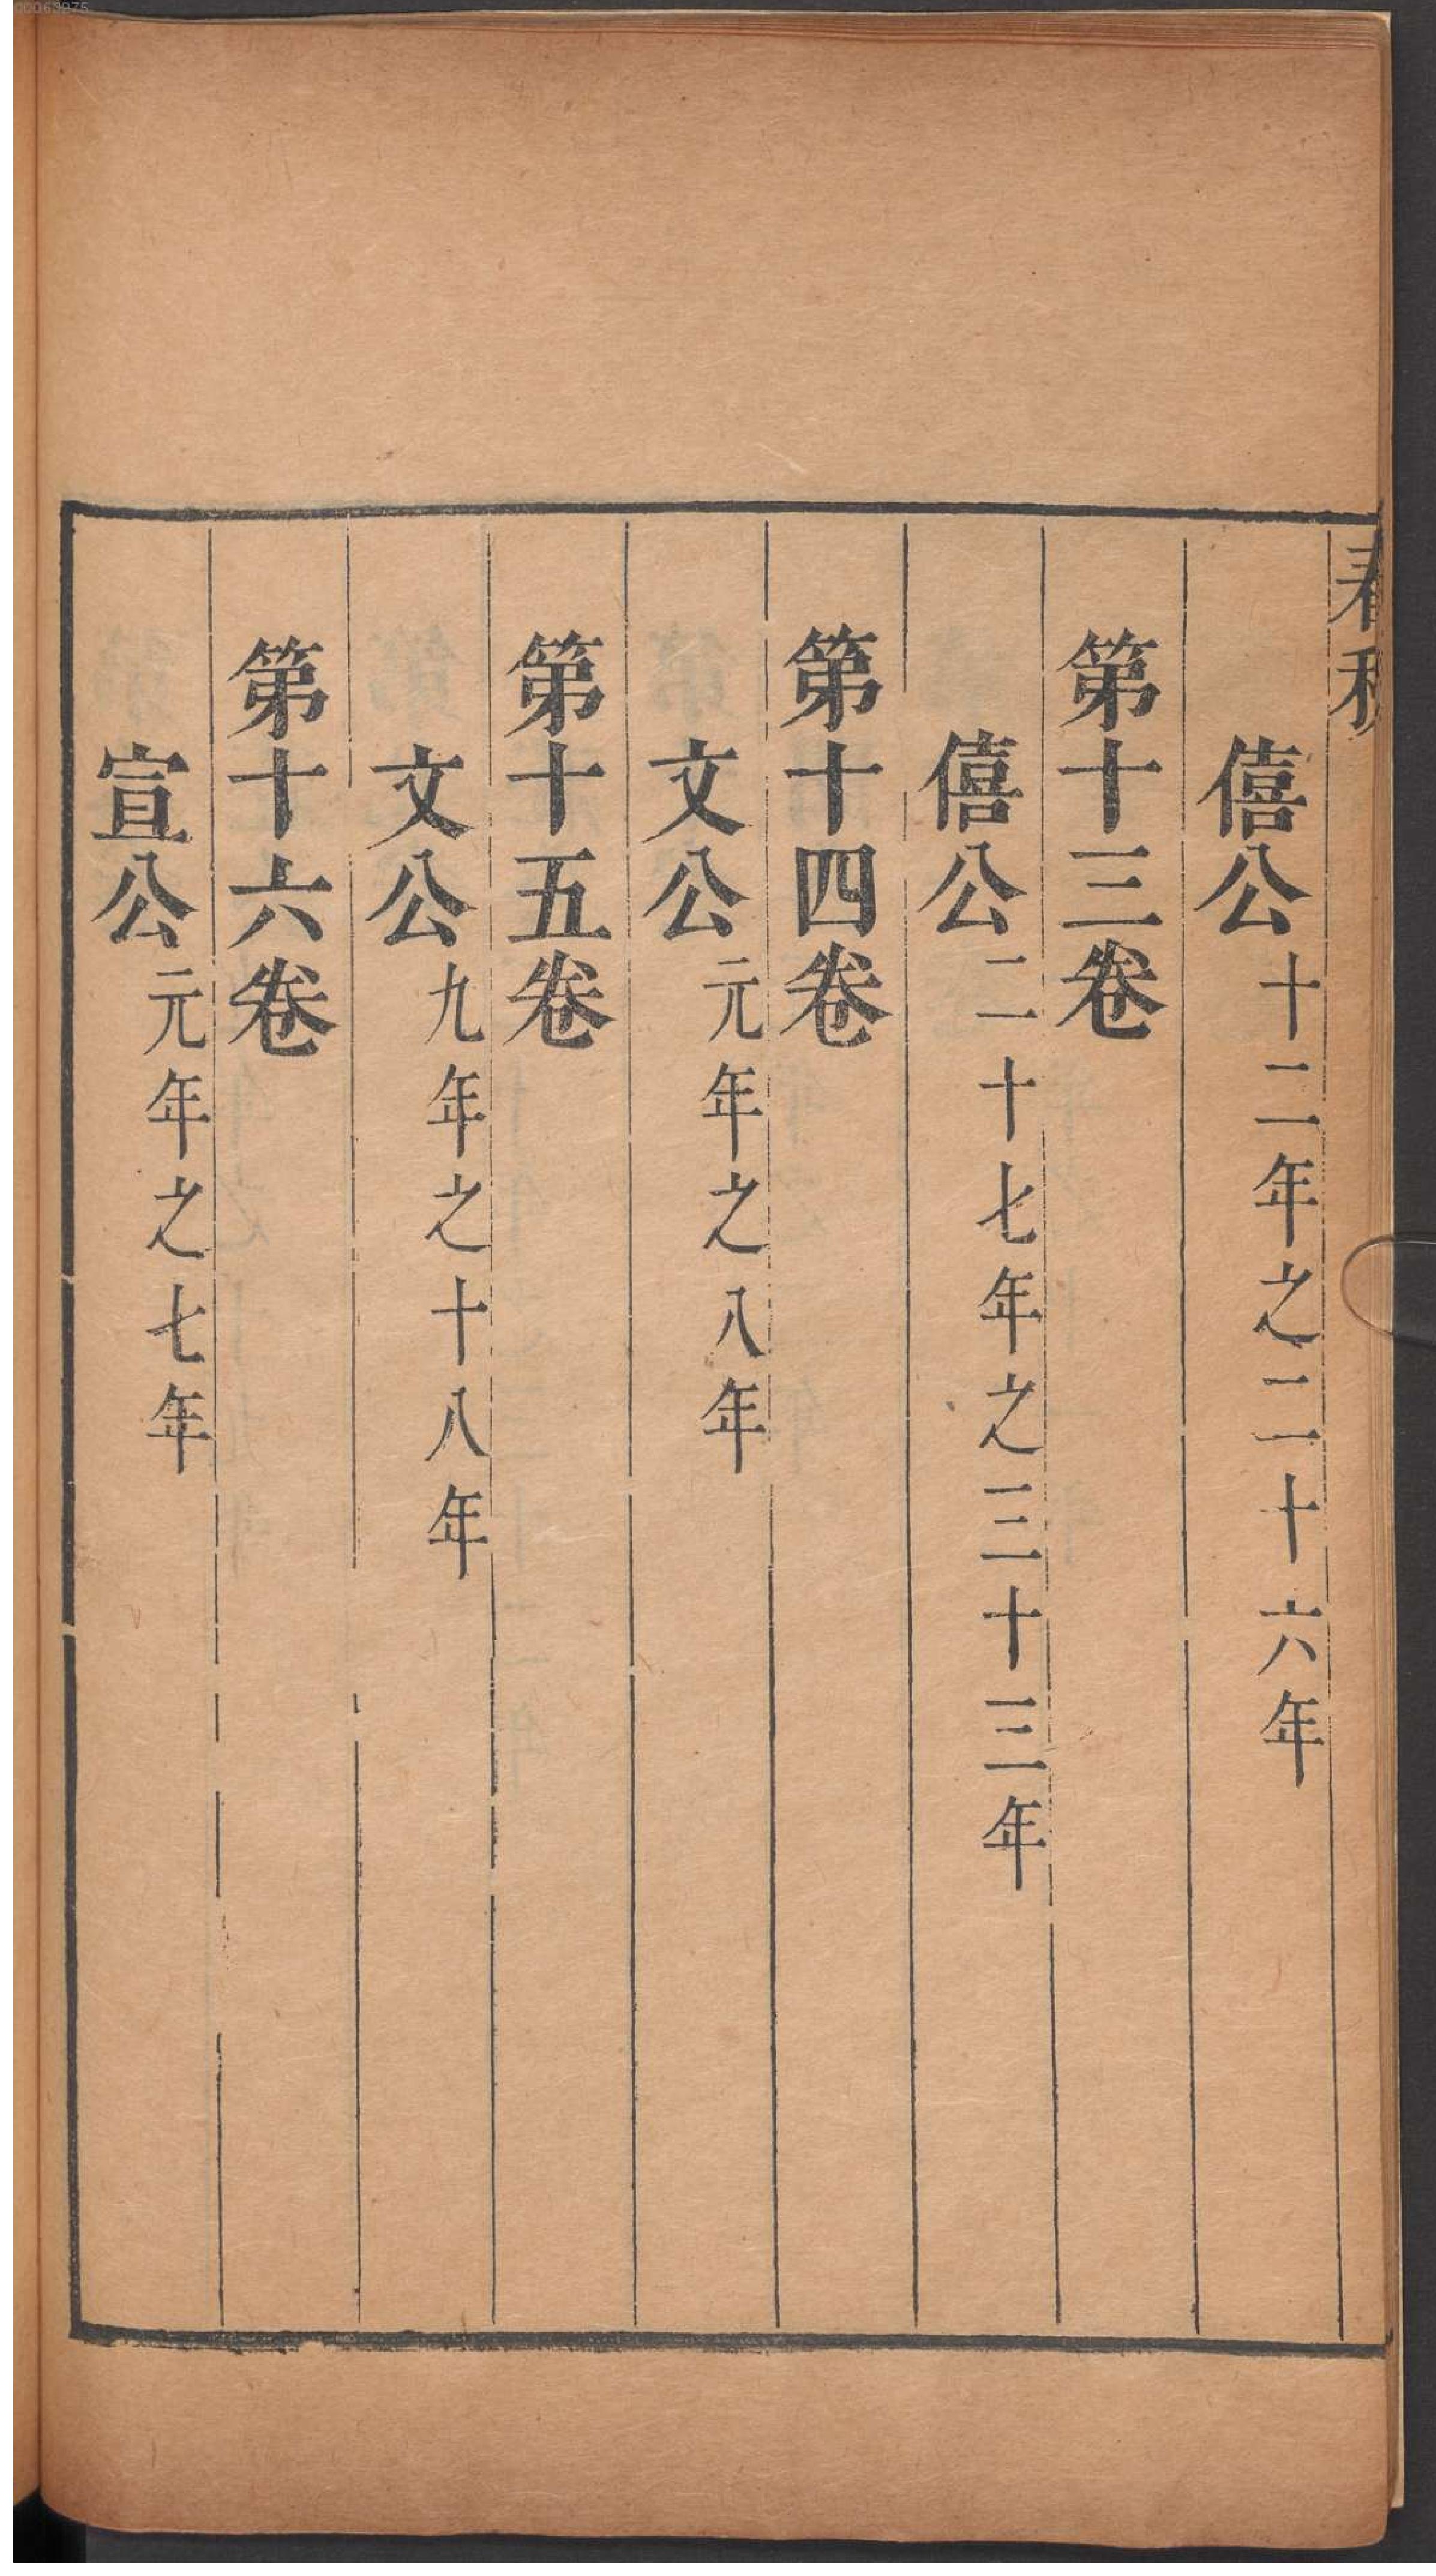 春秋
僖公十二年之二十六年
第十三卷
僖公二十七年之三十三年
第十四卷
文公元年之八年
第十五卷
文公九年之十八年
第十六卷
宣公元年之七年